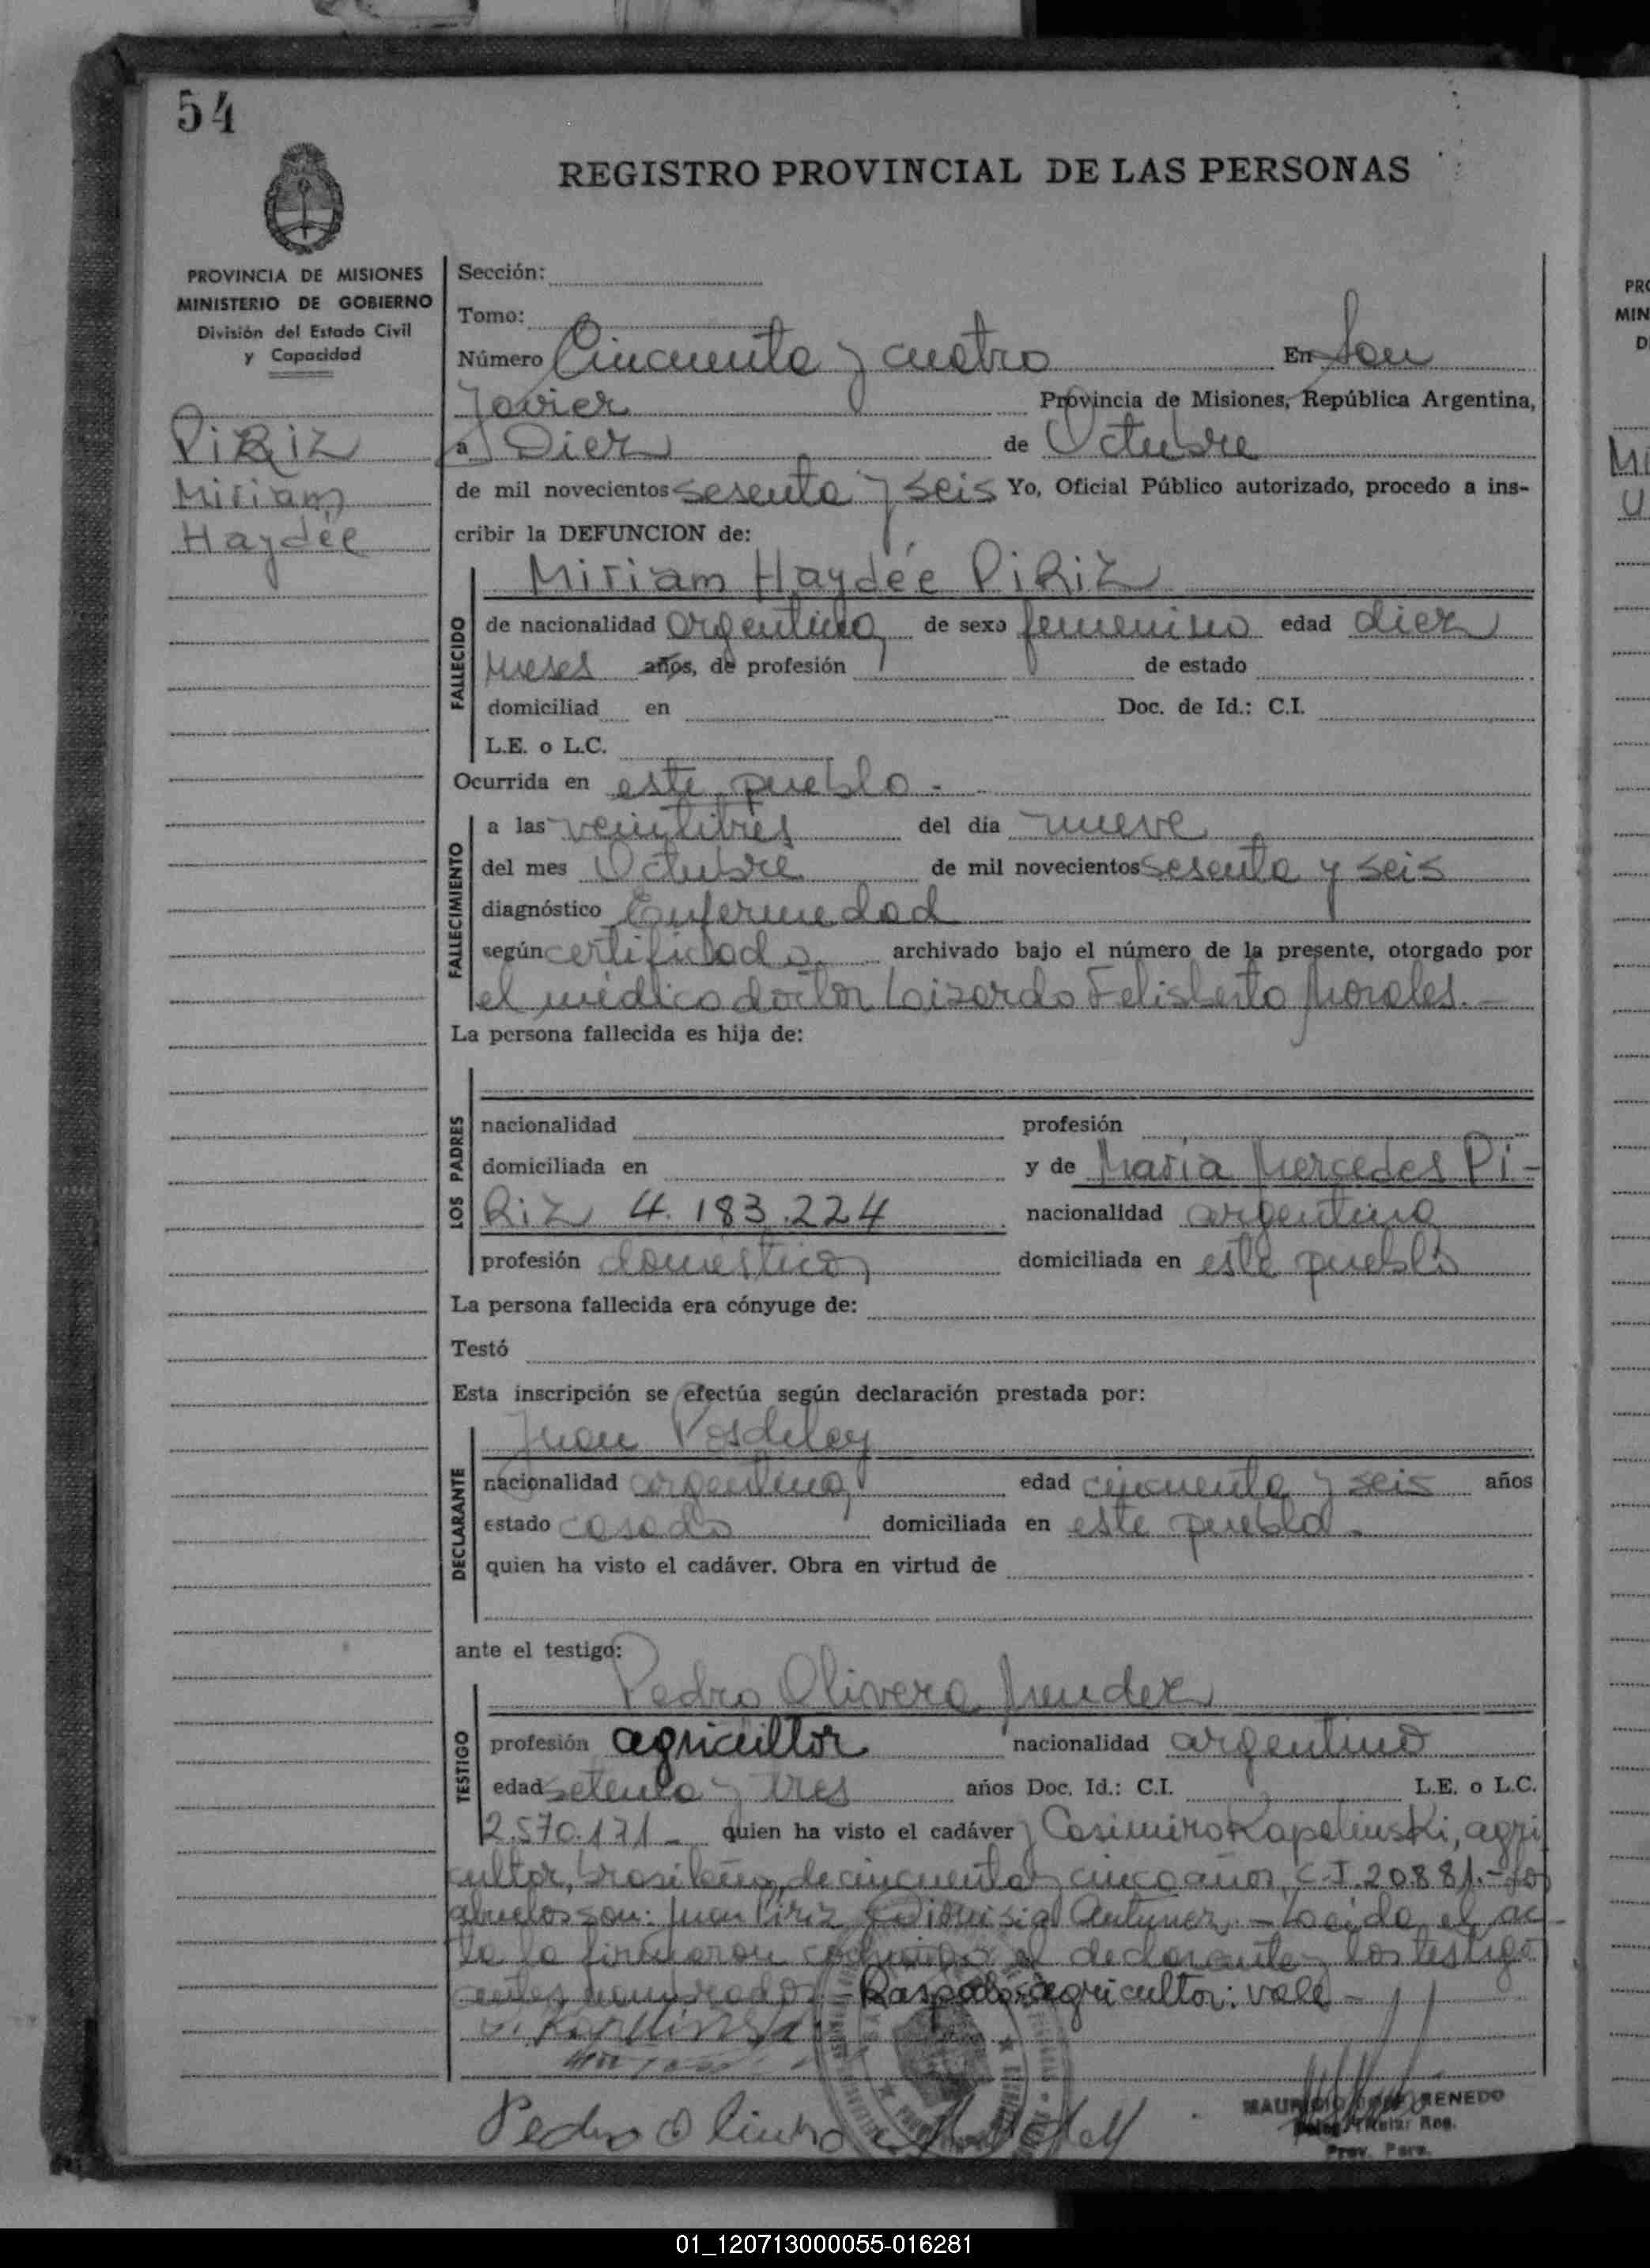 54
REGISTRO PROVINCIAL DE LAS PERSONAS
PROVINCIA DE MISIONES
MINISTERIO DE GOBIERNO
División del Estado Civil
y Capacidad
PiRiz
Miriam
Haydée
Sección:
Tomo:
Número Cincuenta y cuatro En San
Javier Provincia de Misiones, República Argentina,
a Diez de Octubre
de mil novecientos sesenta y seis Yo, Oficial Público autorizado, procedo a ins-
cribir la DEFUNCION de:
Miriam Haydée PiRiz
FALLECIDO
de nacionalidad argentina, de sexo femenino edad diez
meses años, de profesión de estado
domiciliad en Doc. de Id.: C.I.
L.E. o L.C.
Ocurrida en este pueblo.-
FALLECIMIENTO
a las veintitres del día nueve
del mes Octubre de mil novecientos sesenta y seis
diagnóstico Enfermedad
según certificado archivado bajo el número de la presente, otorgado por
el médico doctor Lizardo Felisberto Morales.-
La persona fallecida es hija de:
LOS PADRES
nacionalidad profesión
domiciliada en y de María Mercedes Pi-
Riz 4.183.224 nacionalidad argentina
profesión domestica, domiciliada en este pueblo
La persona fallecida era cónyuge de:
Testó
Esta inscripción se efectúa según declaración prestada por:
Juan
DECLARANTE
nacionalidad argentina, edad cincuenta y seis años
estado casado domiciliada en este pueblo.
quien ha visto el cadáver. Obra en virtud de
ante el testigo:
Pedro Olivera Mendez
TESTIGO
profesión agricultor nacionalidad argentino
edad setenta y tres años Doc. Id.: C.I. L.E. o L.C.
2.570.171- quien ha visto el cadáver y Casimiro Kapelinski, agri
cultor, brasileño, de cincuenta y cinco años, C.I. 20881.- Los
abuelos son: Juan Piriz y Dionisia Antunez.- Leída el ac-
ta la firmaron conmigo el declarante y los testigos
antes nombrados.- Raspado: agricultor: vale-
Pedro Olivera
RENEDO
Titular Reg.
Prov. Pers.
PRO
MIN
D
01_120713000055-016281